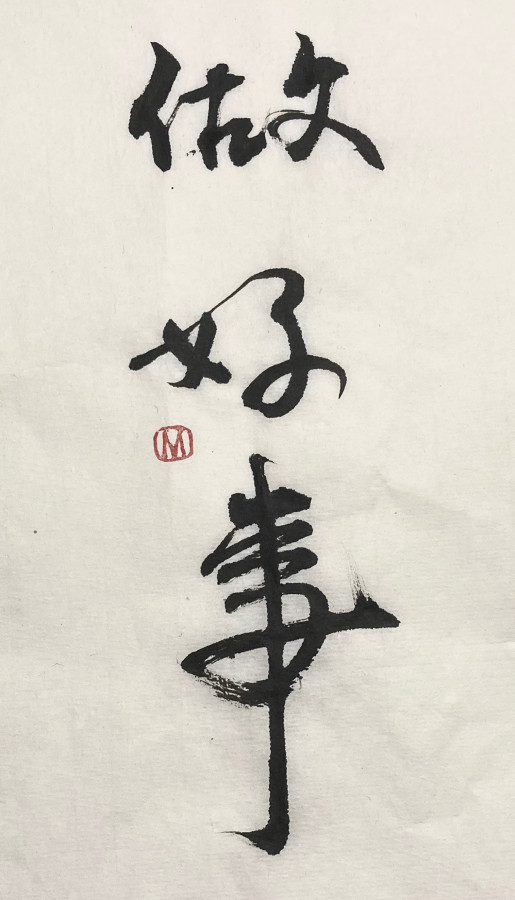 做好事
M